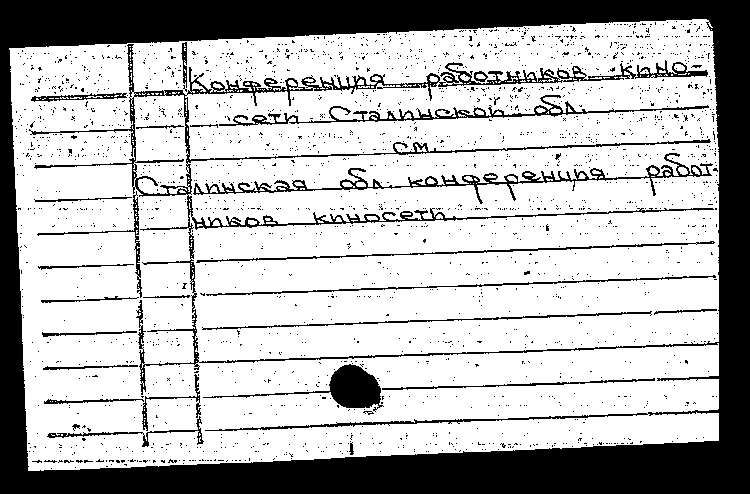 Конференция работников кино-
сети Сталинской обл.
см.
Сталинская обл. конференция работ-
ников киносети.